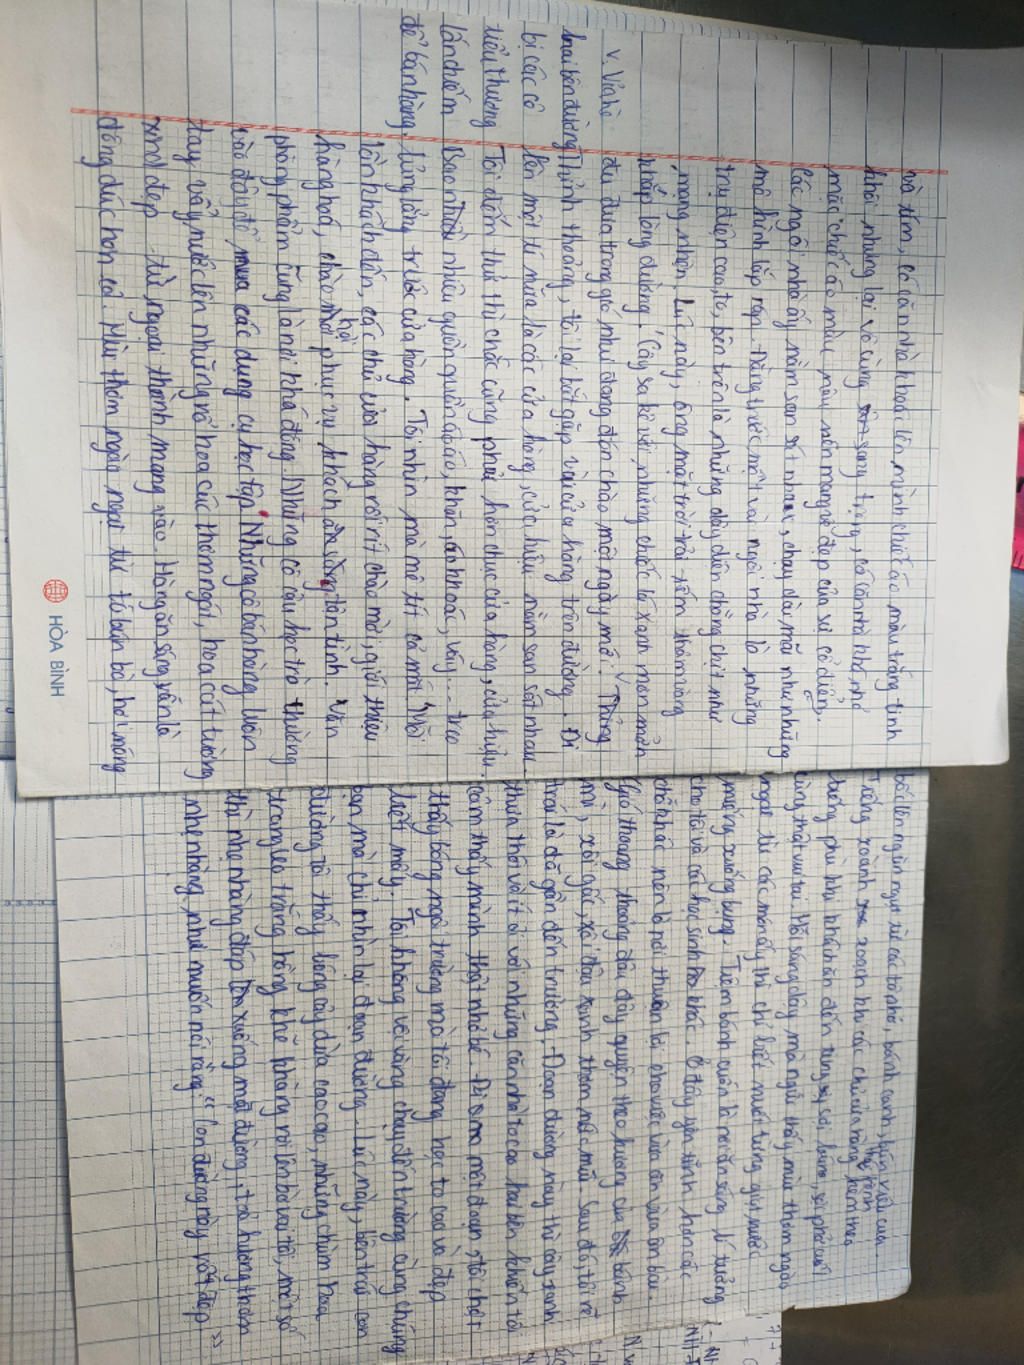 bà tím, có cả nhà khoác lên mình chiếc áo màu trắng tinh
khôi nhưng lại vô cùng sang trọng, có căn nhà khế, nhỏ
mặc chiếc áo màu nâu nên mang vẻ đẹp của sự cổ điển.
Các ngôi nhà ấy nằm san sát nhau, chạy dài, mãi như những
mô hình lắp ráp. Đằng trước một vài ngôi nhà là những
trụ điện cao, to, bên trên là những dây điện chằng chịt như
mạng nhện. Lúc này, ông mặt trời trải rèm thảm vàng
khắp lòng đường. Cây sa kê với những chiếc lá xanh mơn mởn
đu đưa trong gió như đang đón chào một ngày mới. Thỉnh thoảng, tôi lại bắt gặp vài cửa hàng trên đường. Đi
v. Vỉa hè
hai bên đường
bị các cô
tiểu thương
lấn chiếm
để bán hàng.
lên một tí nữa là các cửa hàng, cửa hiệu nằm san sát nhau.
Tôi đếm thử thì chắc cũng phải hơn chục cửa hàng, cửa hiệu.
Bao nhiêu quần áo, khăn, áo khoác, váy... treo
lủng lẳng trước cửa hàng. Tôi nhìn mà mê tít cả mắt. Mỗi
lần khách đến, các chủ cửa hàng rối rít chào mời, giới thiệu
hàng hoá, chào hỏi phục vụ khách tận tình. Văn
phòng phẩm cũng là nơi khá đông. Những cô cậu học trò thường
vào đây để mua các dụng cụ học tập. Những cô bán hàng luôn
tay vẩy nước lên những rổ hoa cúc thơm ngát, hoa cát tường
xinh đẹp từ ngoại thành mang vào. Hàng ăn sáng vẫn là
đông đúc hơn cả. Mùi thơm ngào ngạt từ tô bún bò, hơi nóng
HÒA BÌNH
bốc lên nghi ngút từ các tô phở, bánh canh, bún riêu cua
phù khí khách đến từng sợi, bún, sợi phở cuối
cùng thật vui tai. Mỗi sáng dậy mà ngửi thấy mùi thơm ngào
ngạt từ các món ấy thì chỉ biết nuốt từng giọt nước
miếng xuống bụng. Tiệm bánh cuốn là nơi ăn sáng lí tưởng
cho tôi và các học sinh khác. Ở đây yên tĩnh hơn các
chỗ khác nên là nơi thuận lợi cho việc vừa ăn vừa ôn bài.
Gió thoang thoảng đâu đây quyện theo hương của bánh
mì, xôi gấc, xôi đậu xanh thơm nức mũi. Sau đó, tôi rẽ
trái là đã gần đến trường. Đoạn đường này thì cây xanh
thưa thớt và ít ỏi với những căn nhà to cao hai bên khiến tôi
cảm thấy mình thật nhỏ bé. Đi qua một đoạn, tôi chợt
thấy bóng ngôi trường mà tôi đang học to cao và đẹp
biết mấy. Tôi không vội vàng chạy đến trường cùng chúng
bạn mà chỉ nhìn lại đoạn đường. Lúc này, bên trái con
đường tôi thấy bóng cây dừa cao cao, những chùm hoa
trong leo trắng hồng khẽ khàng rơi lên bờ vai tôi, một số
thì nhẹ nhàng đáp xuống mặt đường, toả hương thơm
nhẹ nhàng như muốn nói rằng: "Con đường này vốn đẹp